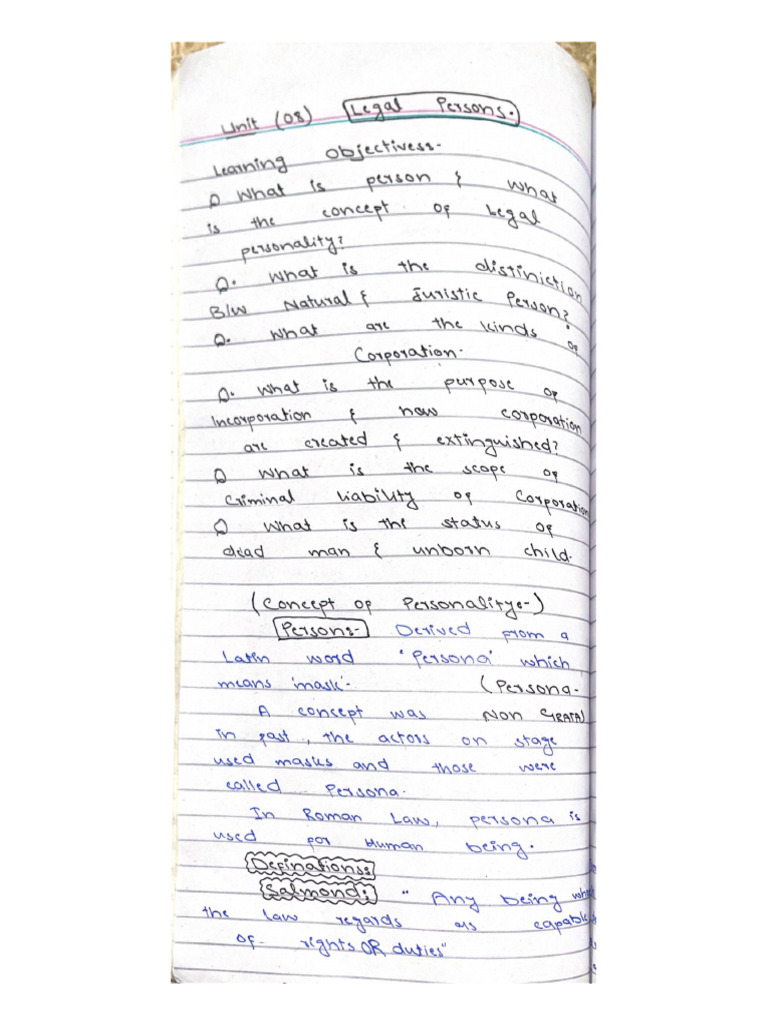 Unit (08) Legal Persons.
Learning Objectivess-
Q What is person & what
is the concept of Legal
personality?
Q. What is the distiniction
B/w Natural & Juristic Person?
Q. What are the kinds of
Corporation.
Q. What is the purpose of
Incorporation & how corporation
are created & extinguished?
Q What is the scope of
Criminal liability of Corporation
Q What is the status of
dead man & unborn child.
(Concept of Personalitye-)
Persons- Derived from a
Latin word 'Persona' which
means 'mask'- (Persona-
A concept was NON GRATA)
in past, the actors on stage
used masks and those were
called Persona.
In Roman Law, persona is
used for Human being.
Definationss:
Salmond: " Any being
the law regards as capable
of rights OR duties"